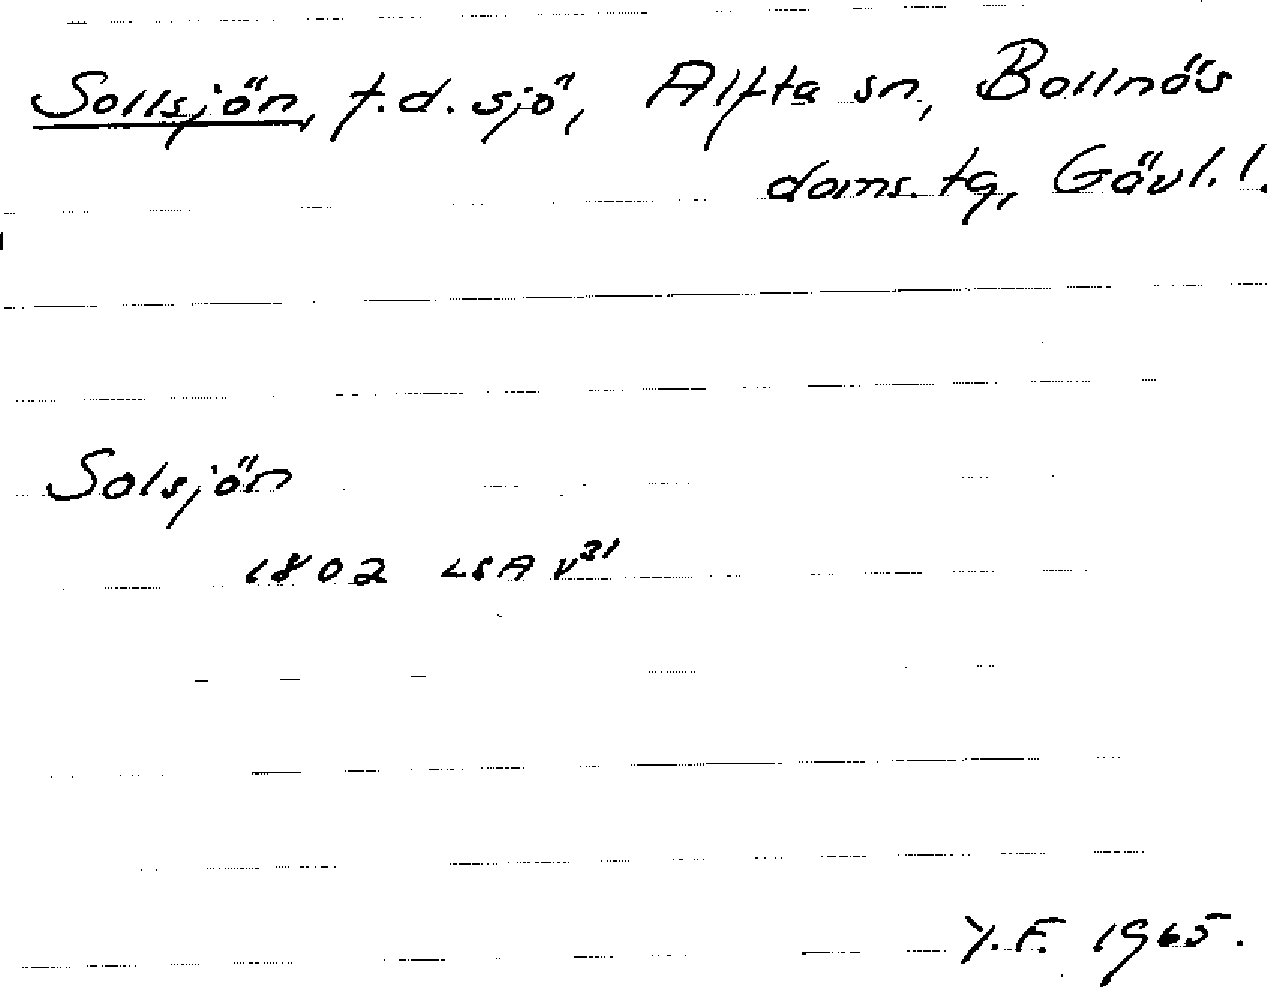 Sollsjön, f.d. sjö, Alfta sn, Bollnäs
doms. tg, Gävl. l.
Solsjön
1802 LSA V31
Y.F. 1965.